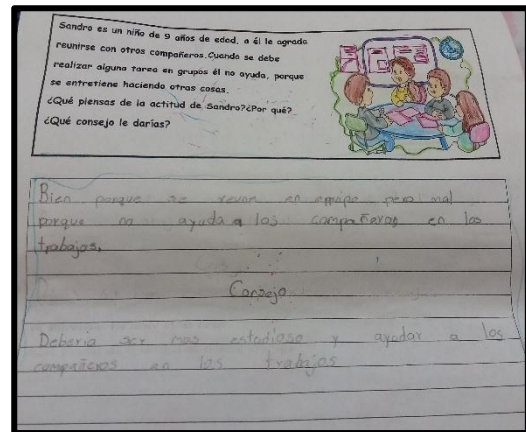 Sandro es un niño de 9 años de edad, a él le agrada
reunirse con otros compañeros.Cuando se debe
realizar alguna tarea en grupos él no ayuda, porque
se entretiene haciendo otras cosas.
¿Qué piensas de la actitud de Sandro?¿Por qué?
¿Qué consejo le darías?
Bien porque se reune en equipo pero mal
porque no ayuda a los compañeros en los
trabajos.
Consejo
Deberia ser mas estudioso y ayudar a los
compañeros en los trabajos